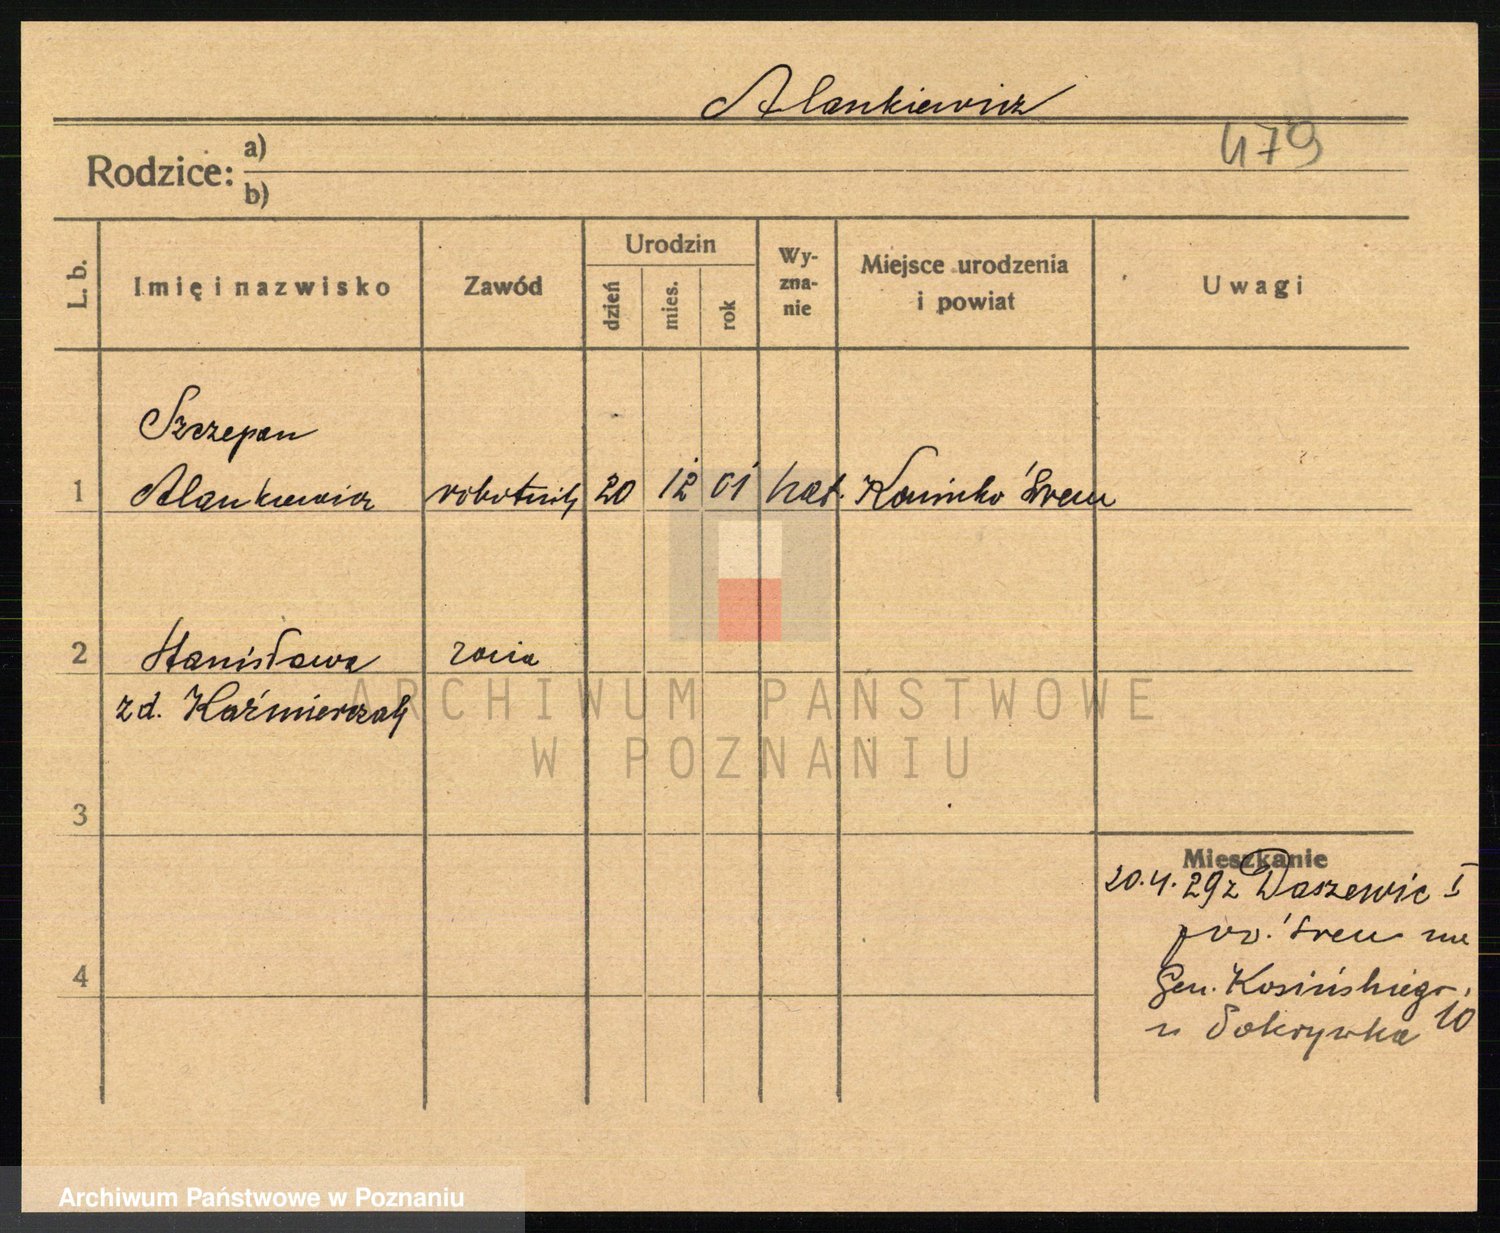 Alankiewicz
479
Rodzice: a)
b)
L. b.
Imię i nazwisko
Zawód
Urodzin
dzień
mies.
rok
Wy-
zna-
nie
Miejsce urodzenia
i powiat
Uwagi
Szczepan
1 Alankiewicz robotnik 20 12 01 kat. Koninko Śrem
2 Stanisława żona
zd. Kaźmierczak
3
4
Mieszkanie
20.4.29 z Daszewic I
pow. Śrem na
Gen. Kosińskiego
10
u Sokrywka
ARCHIWUM PAŃSTWOWE
W POZNANIU
Archiwum Państwowe w Poznaniu